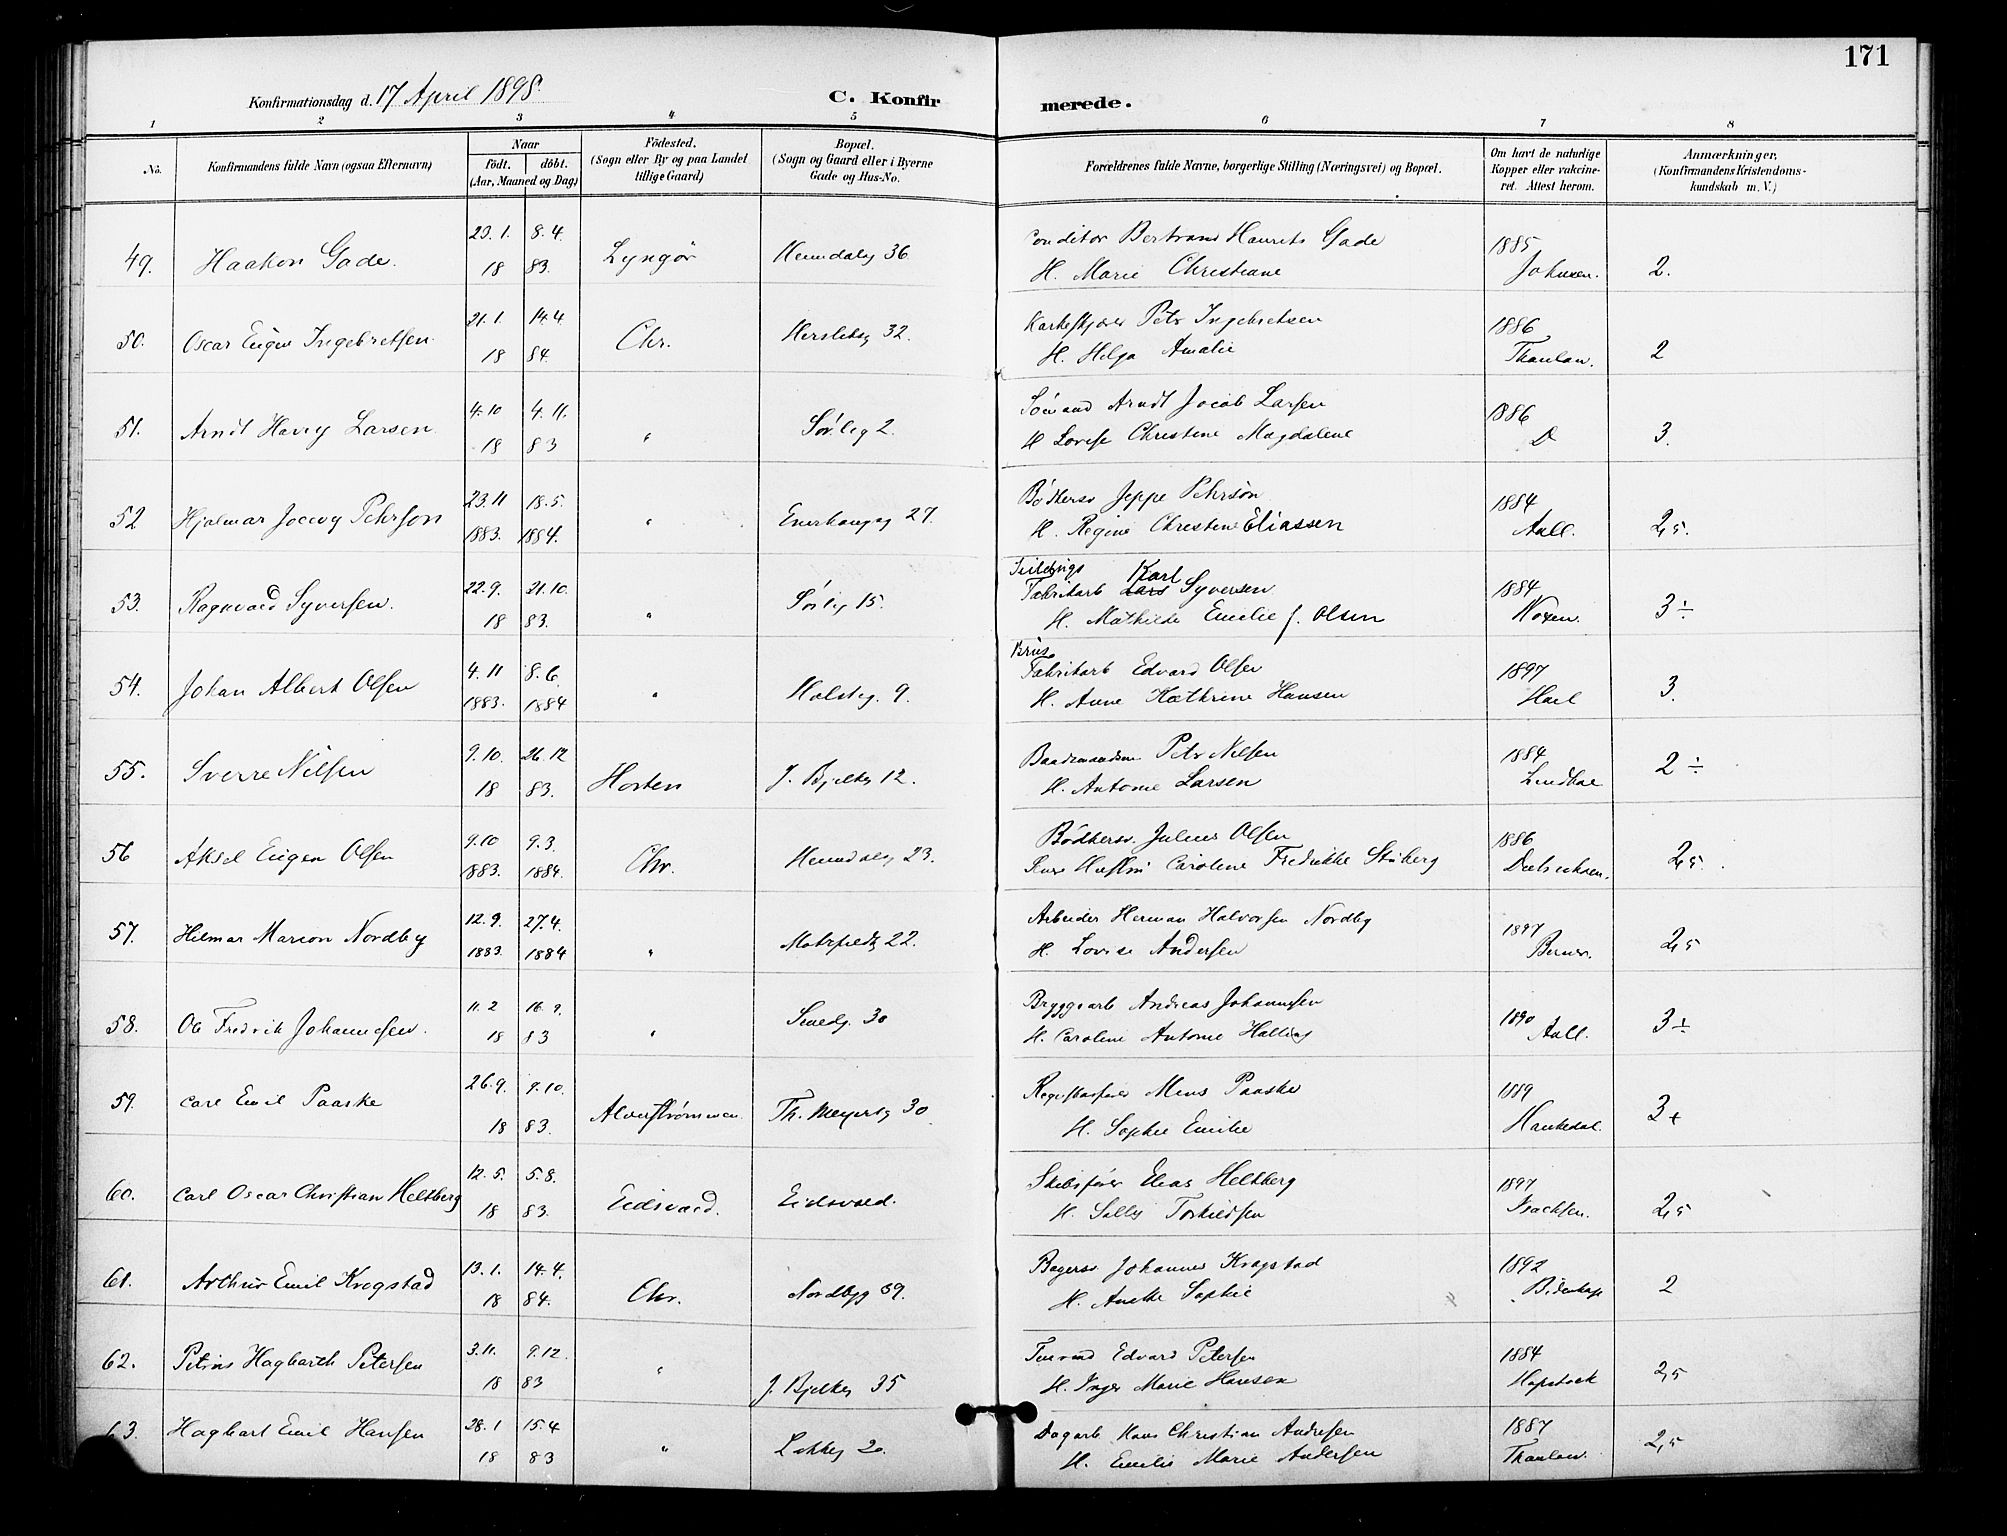 171
Konfirmationsdag d. 17 April 1898.
C. Konfirmerede.
1 2 3 4 5 6 7 8
No.
Konfirmandens fulde Navn (ogsaa Efternavn)
Naar
födt. döbt.
(Aar, Maaned og Dag)
Födested.
(Sogn eller By og paa Landet
tillige Gaard)
Bopæl.
(Sogn og Gaard eller i Byerne
Gade og Hus-No.
Forældrenes fulde Navne, borgerlige Stilling (Næringsvei) og Bopæl.
Om havt de naturlige
Kopper eller vakcine-
ret. Attest herom.
Anmærkninger,
(Konfirmandens Kristendoms-
kundskab m. V.)
49. Haakon Gade. 23.1. 8.4. Lyngör 36 Conditor Bertrand Gade 1885
18 83. H. Marie Christiane Johnsen. 2.
50. Oscar Eugen Ingebretsen 21.1. 14.4. Chr. Herslebsg 32. Petr Ingebretsen 1886
18 84. H. Helga Amalie Thaulow. 2
51. Arndt Harry Larsen 4.10 4.11. " Sörlig 2. Sömand Arndt Jacob Larsen 1886
18 83 H Lovise Christine Magdalene D 3.
52 Hjalmar Pehrson 23.11 18.5. " Enerhaugsg 27. Bödkersv Jeppe Pehrsön 1884
1883. 1884. H. Regine Christine Eliassen Aall. 2,5.
53. Ragnvald Syversen. 22.9. 21.10. " Sörlig 15. Fabrikarb Lars Karl Syversen 1884
18 83. H. Mathilde Emilie f. Olsen 3 ÷
54. Johan Albert Olsen 4.11 8.6. " Holstsg. 9. Fabrikarb Edvard Olsen 1897
1883. 1884 H. Anne Kathrine Hansen 3.
55. Sverre Nilsen 9.10. 26.12 Horten J. Bjelkesg 12. Baadsmandsm Petr Nilsen 1884
18 83. H. Antonie Larsen 2 ÷
56 Aksel Eugen Olsen 9.10 9.3. Chr. 23. Bödkersv. Julius Olsen 1886
1883. 1884. Hustru Caroline Fredrikke 2,5.
57. Hilmar Marion Nordby 12.9. 27.4. " Motzfeldtsg 22. Arbeider Herman Halvorsen Nordby 1897
1883. 1884 H. Lovise Andersen Berner. 2,5
58. Fredrik Johannesen. 11.2 16.9. " 30 Bryggearb Andreas Johannesen 1890
18 83 H. Caroline Antonie Aall. 3 ÷
59. Carl Emil Paaske 26.9. 9.10. Alverströmmen. Th. Meyersg 30. Mens Paaske 1889
18 83. H. Sophie Emilie 3+
60. Carl Oscar Christian Heltberg 12.5. 5.8. Eidsvold. Eidsvold. Skibsförer Elias Heltberg 1897
18 83. H. Sally Torkildsen Isachsen. 2,5
61. Arthur Emil Krogstad 13.1. 14.4. Chr. Nordbyg 59. Bagersv Johannes Krogstad 1892
18 84. H. Anette Sophie Bidenkap 2
62. Petrus Hagbarth Petersen 3.11. 9.12. " J. Bjelkesg 35 Edvard Petersen 1884
18 83 H. Inger Marie Hansen Hopstock 2,5
63. Hagbart Emil Hansen 28.1 15.4 " Lakkeg 20. Dagarb Hans Christian Andresen 1887
18 83 H. Emilie Marie Andersen Thaulow. 2,5